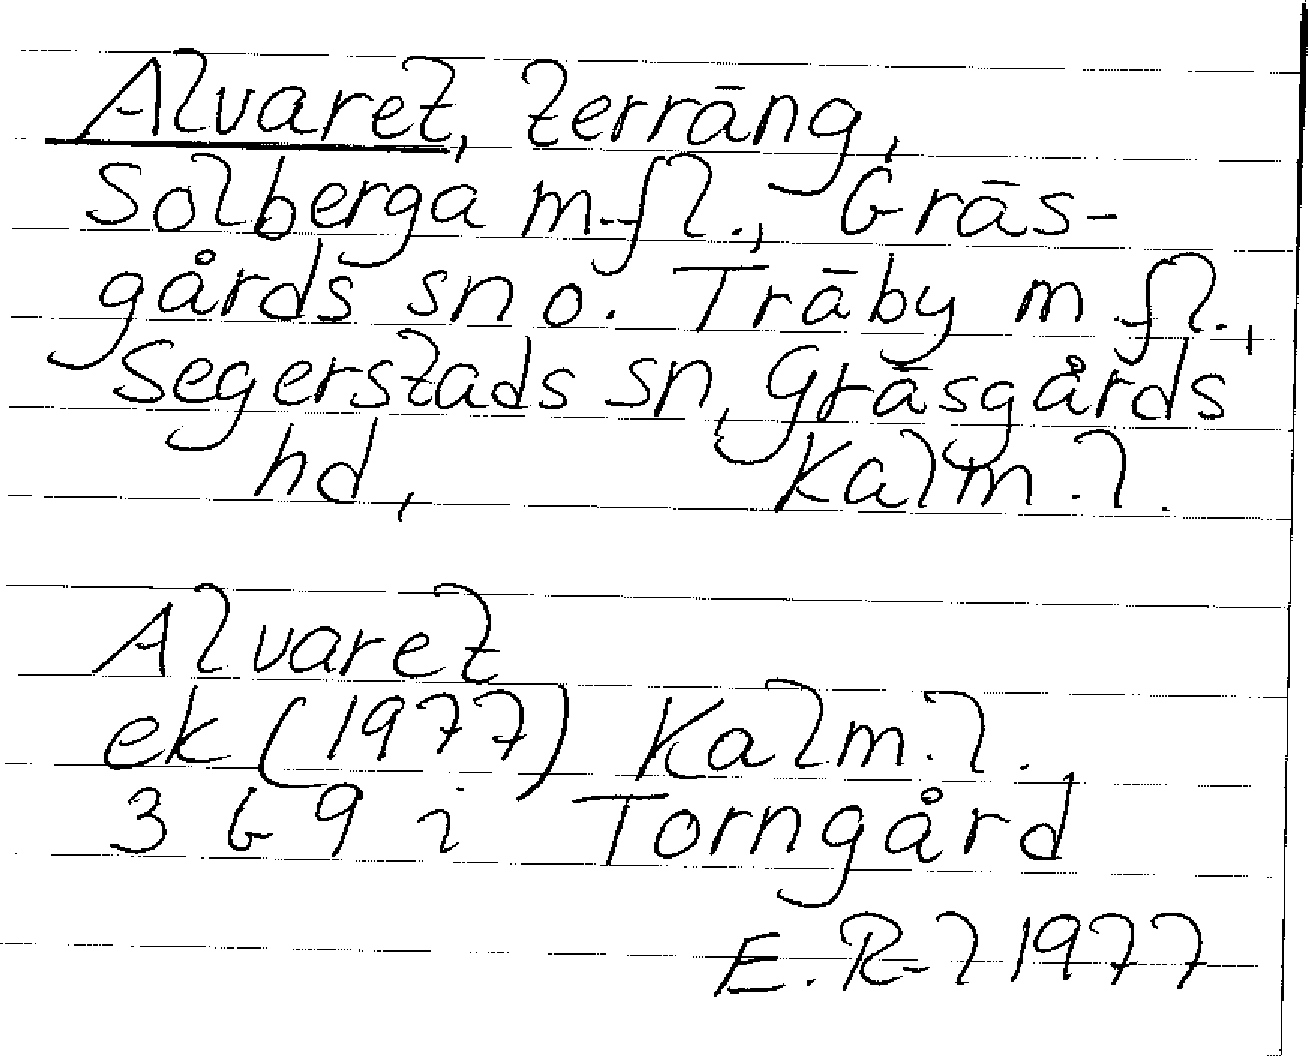 Alvaret, terräng,
Solberga m.fl., Gräs-
gårds sn o. Träby m fl.,
Segerstads sn, Gräsgårds
hd, Kalm.l.
Alvaret
ek (1977) Kalm.l.
3 G 9 i Torngård
E. R-l 1977